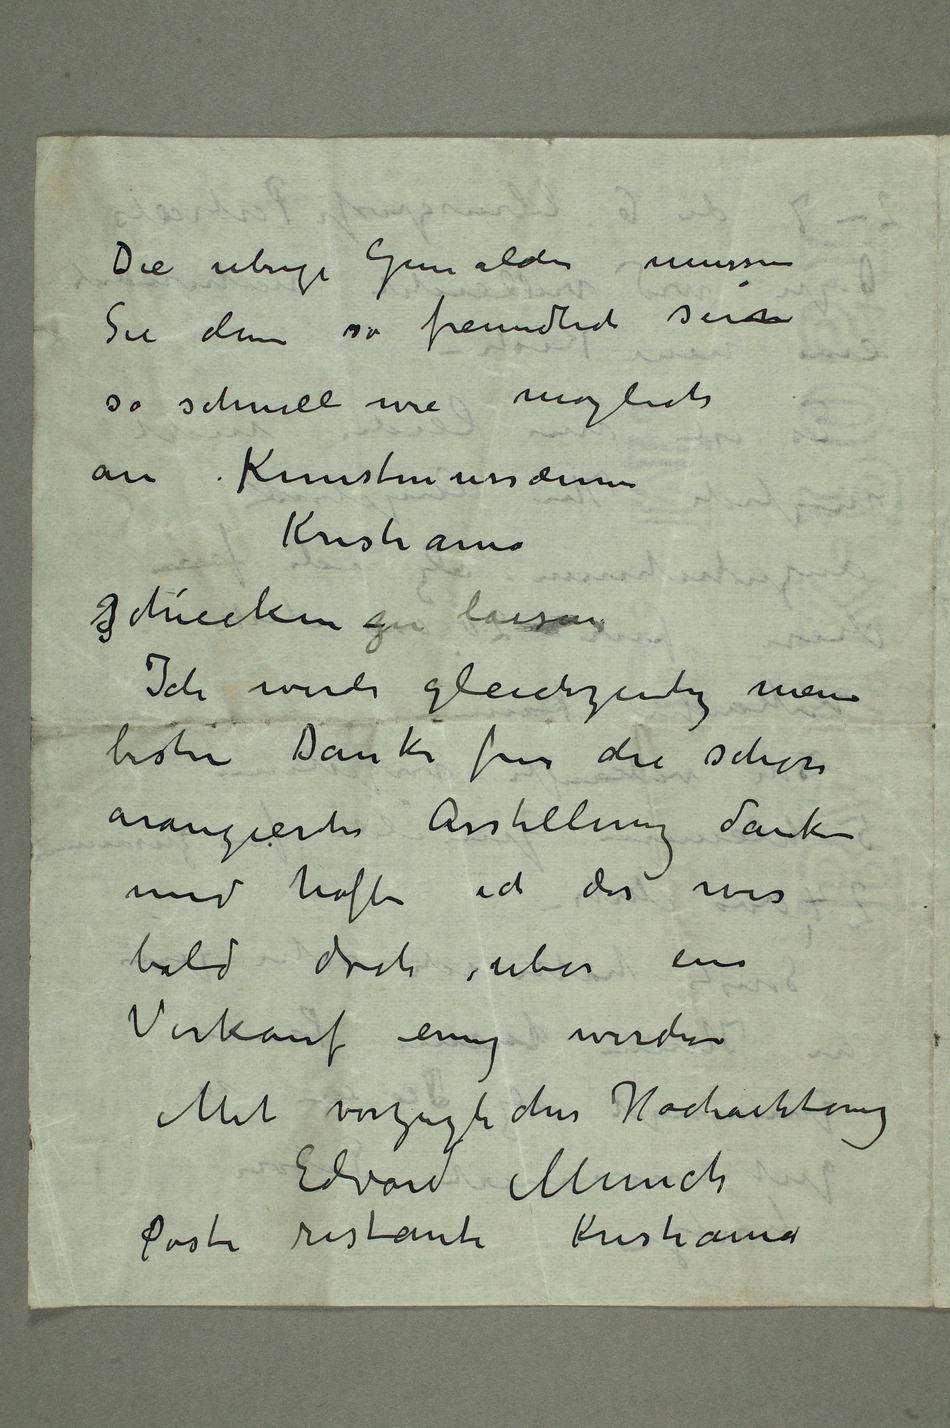 Die übrige Gemälden müssen
Sie denn so freundlich sein
so schnell wie möglich
an Kunstmussæum
Kristiania
schiecken zu laissen
Ich werde gleichzeitig mein
besten Danke für die schön
arangierte Asstellung danken
und hoffe ich das wir
bald doch über ein
Verkauf einig werden
Mit vorzüglicher Hochachtung
Edvard Munch
Poste restante Kristiania